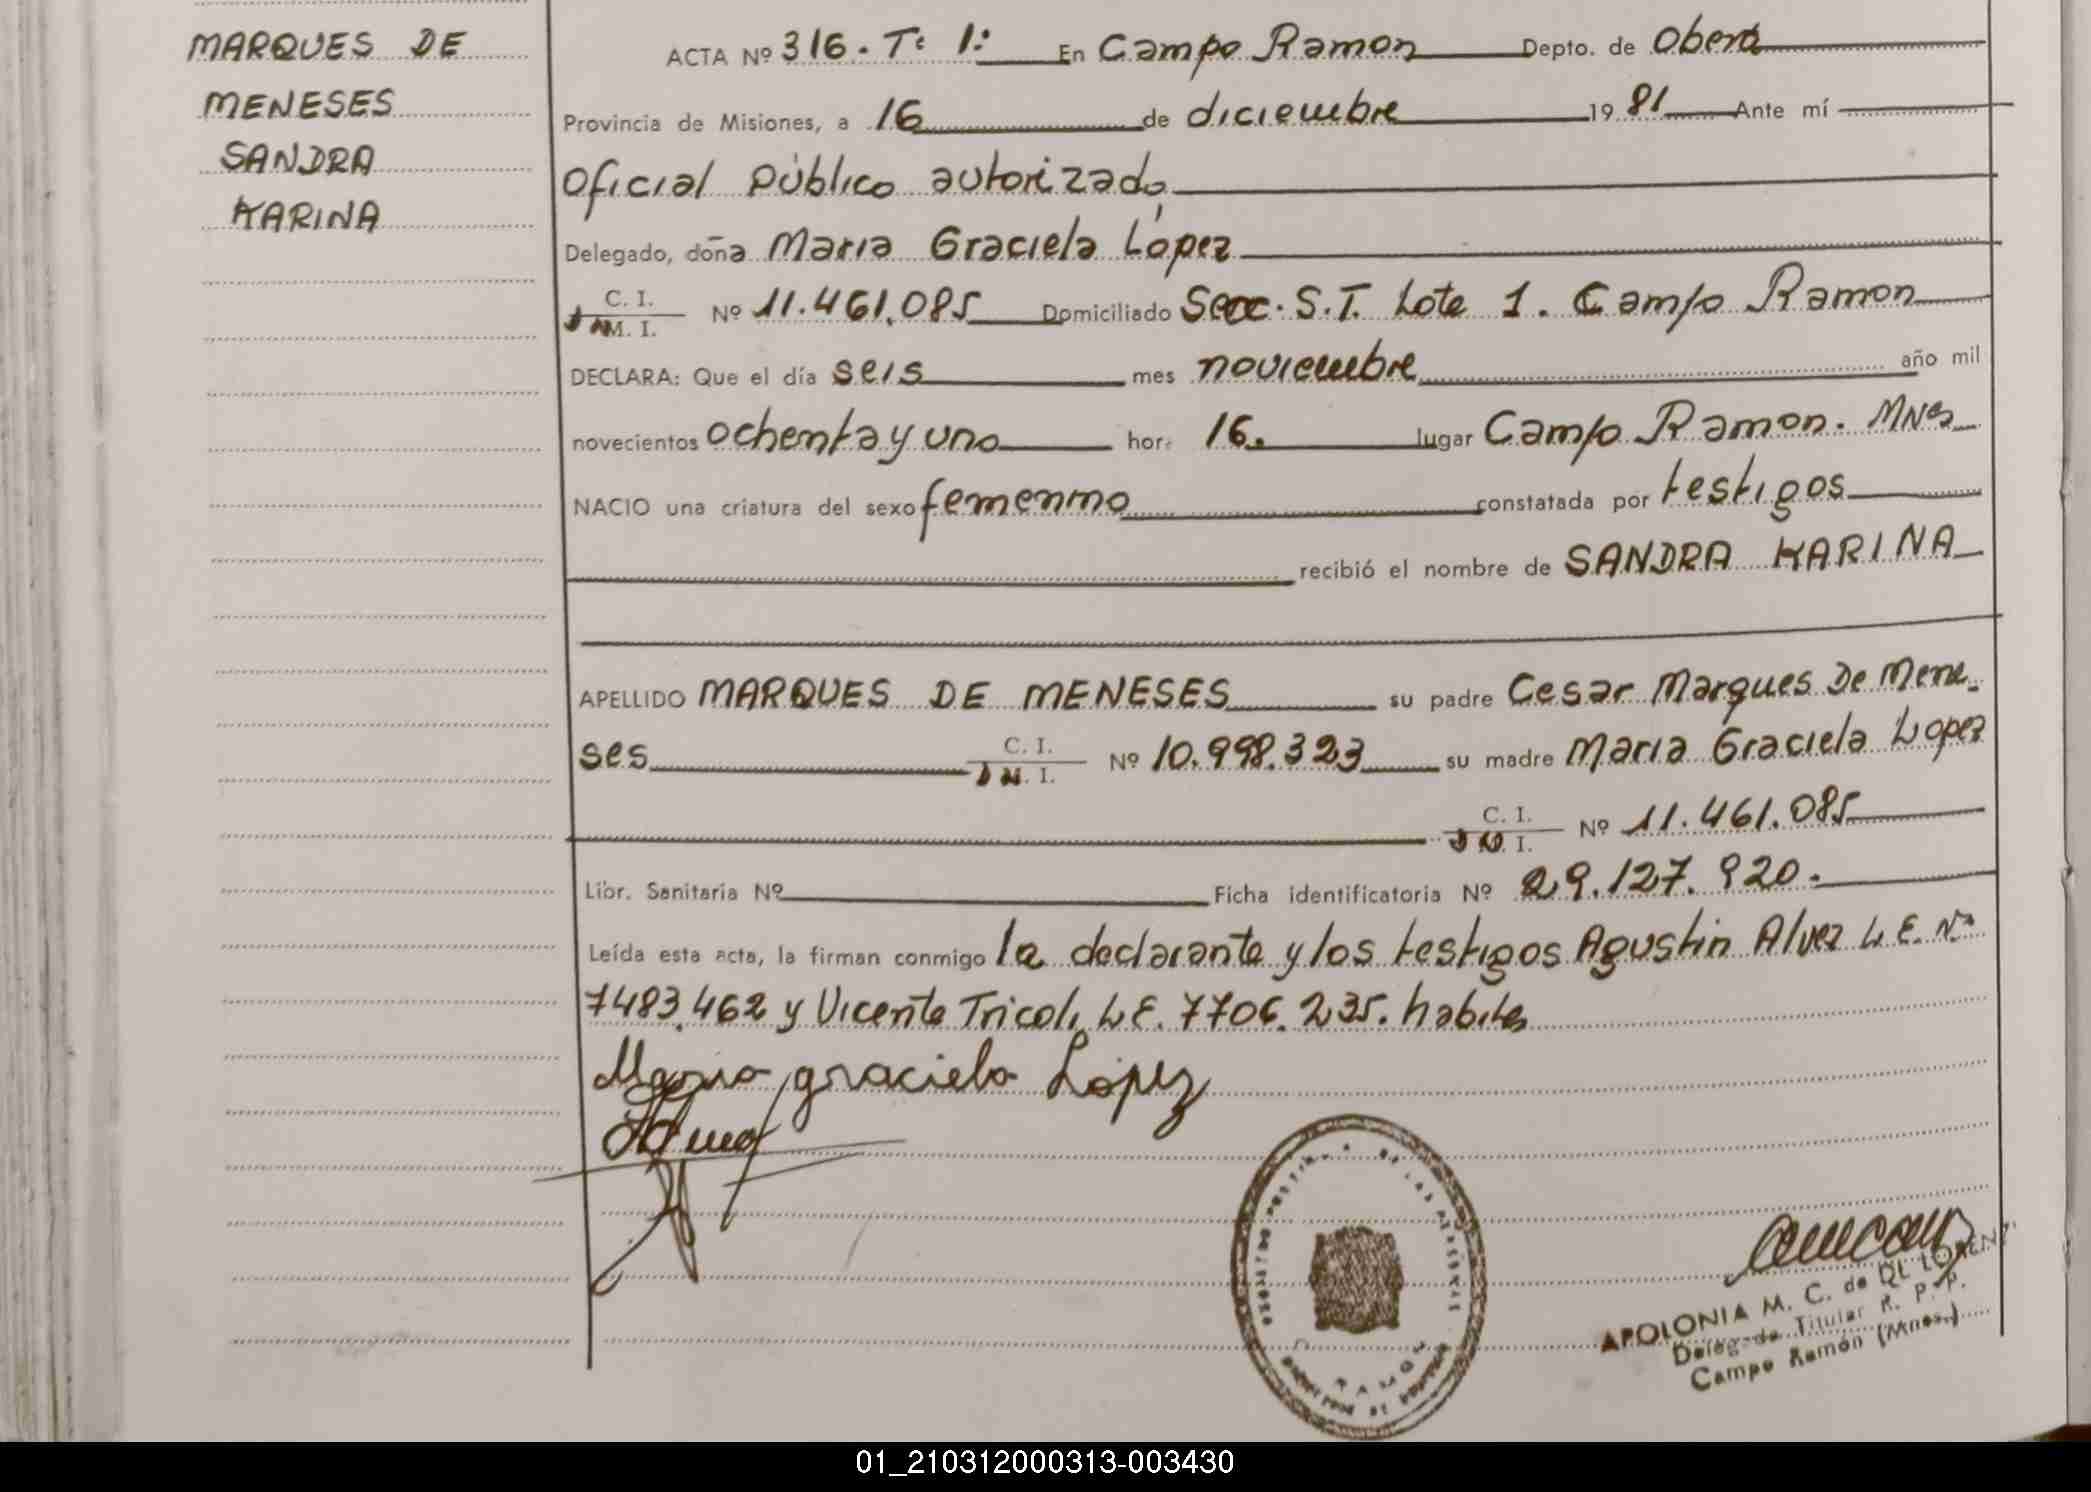 MARQUES DE
MENESES
SANDRA
KARINA
ACTA Nº 316. Tº 1º En Campo Ramon Depto. de Oberá
Provincia de Misiones, a 16 de diciembre 19 81 Ante mí
oficial público autorizado
Delegado, doña Maria Graciela López
C. I.
M. I. Nº 11.461.085 Domiciliado Secc. S.T. Lote 1. Campo Ramon
DECLARA: Que el día seis mes noviembre año mil
novecientos ochenta y uno hor: 16. lugar Campo Ramon. Mnes
NACIO una criatura del sexo femenino constatada por testigos
recibió el nombre de SANDRA KARINA
APELLIDO MARQUES DE MENESES su padre Cesar Marques De Mene-
ses C. I. Nº 10.998.323 su madre Maria Graciela Lopez
C. I. Nº 11.461.085
Libr. Sanitaria Nº Ficha identificatoria Nº 29.127.920.
Leída esta acta, la firman conmigo la declarante y los testigos Agustin Alvez L.E. Nº
7483.462 y Vicente Tricoli L.E. 7706.235. habiles
Maria graciela López
APOLONIA M. C. de
Delegada Titular R. P. P.
Campo Ramón (Mnes.)
01_210312000313-003430